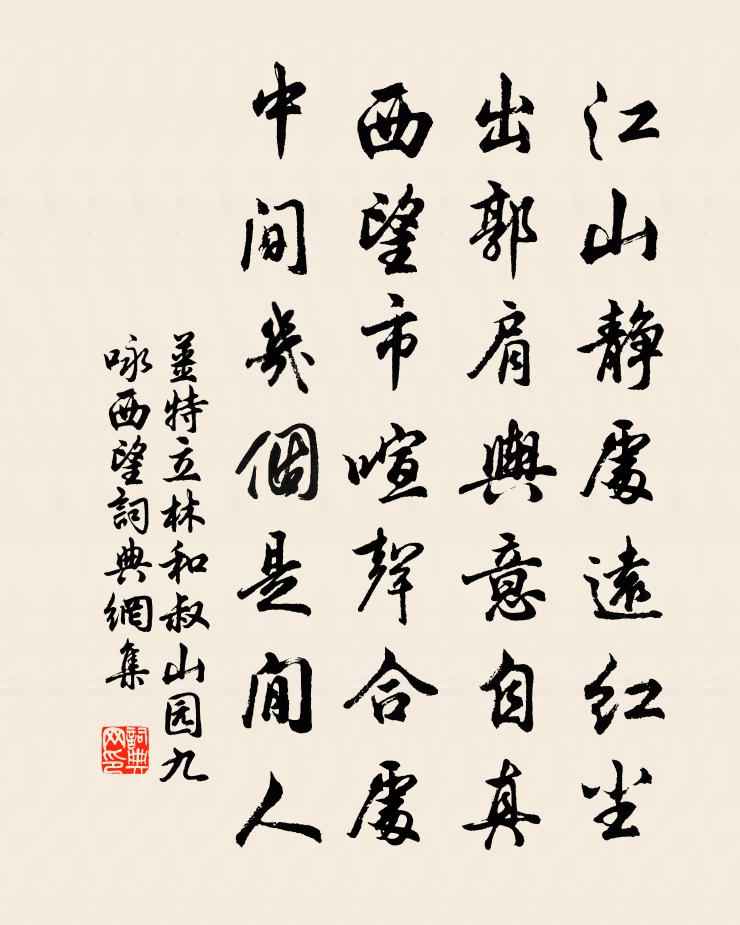 江山靜處遠紅塵
出郭肩輿意自真
西望市喧聲合處
中間幾個是閒人
薑特立林和叔山园九
咏西望詞典網集
詞典
网印